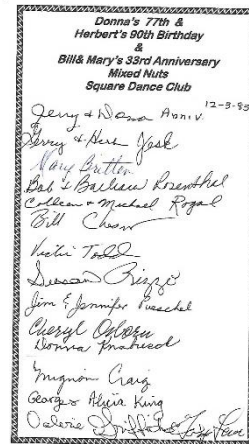 Donna's 77th &
Herbert's 90th Birthday
&
Bill& Mary's 33rd Anniversary
Mixed Nuts
Square Dance Club
12-3-83
Jerry & Donna Anniv.
Gerry & Herb
Mary Britten
Bob & Barbara Rosenthal
Colleen & Michael Rogal
Bill
Vicki Todd
Susan Rizzi
Jim & Jennifer Pueschel
Cheryl Osborn
Donna
Mignon Craig
George & Alicia King
Valerie Griffith